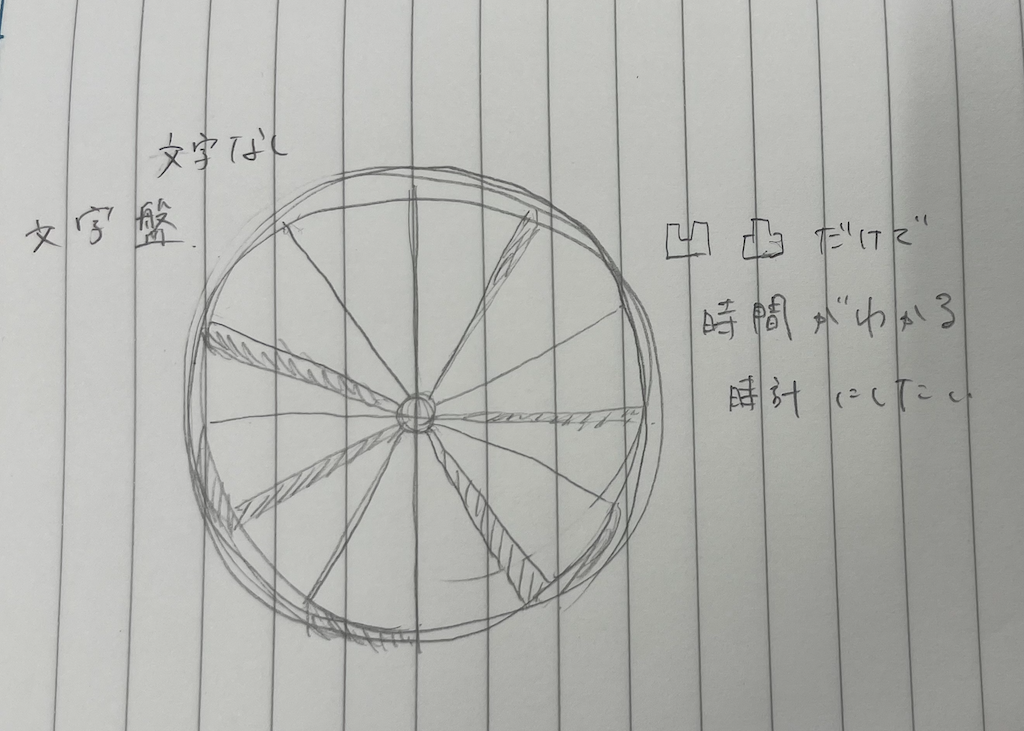 文字なし
文字盤.
凹 凸 だけで
時間がわかる
時計にしたい.